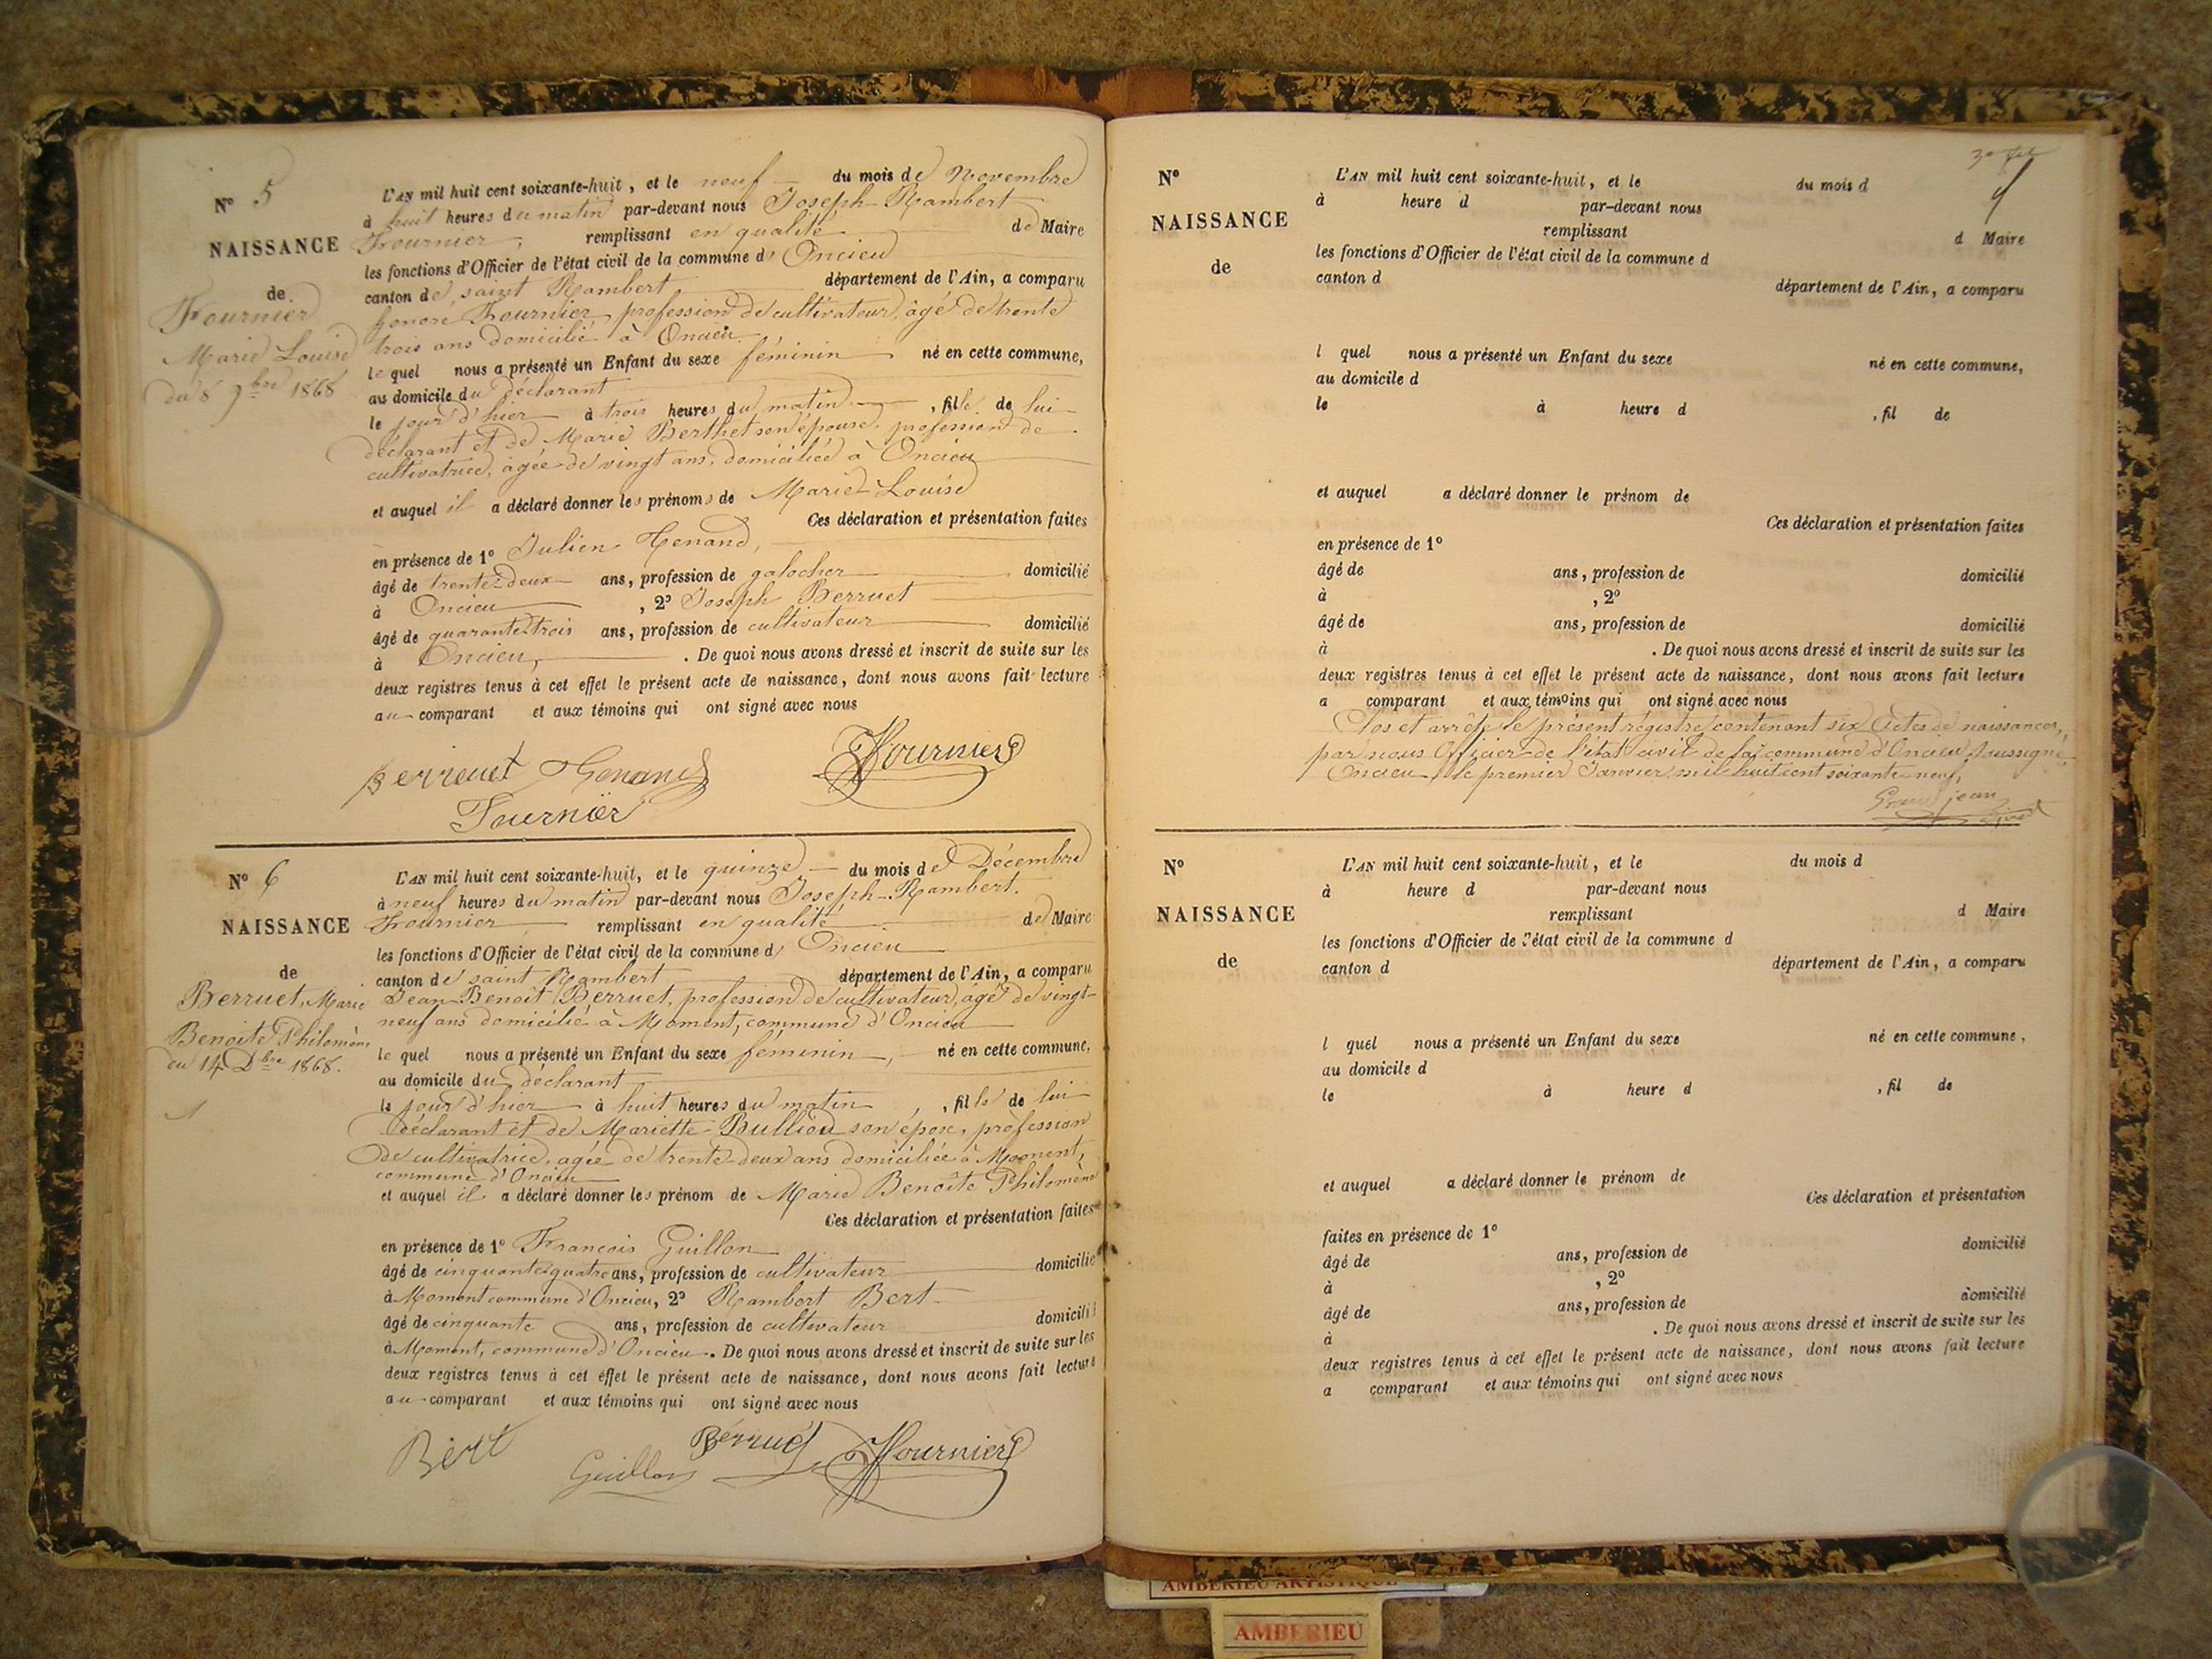 N° 5
NAISSANCE
de
Fournier
Marie Louise
du 8 9bre 1868
L'AN mil huit cent soixante-huit, et le neuf du mois de Novembre
à huit heures du matin par-devant nous Joseph-Rambert
Fournier, remplissant en qualité de Maire
les fonctions d'Officier de l'état civil de la commune d' Oncieu
canton de saint Rambert département de l'Ain, a comparu
honoré Fournier, profession de cultivateur, âgé de trente
trois ans domicilié à Oncieu
le quel nous a présenté un Enfant du sexe féminin né en cette commune,
au domicile du déclarant
le jour d'hier à trois heures du matin, fille de lui
déclarant et de Marie Berthet son épouse, profession de
cultivatrice, agée de vingt ans, domiciliée à Oncieu
et auquel il a déclaré donner les prénoms de Marie-Louise
Ces déclaration et présentation faites
en présence de 1° Julien Henand,
âgé de trente-deux ans, profession de galocher domicilié
à Oncieu, 2° Joseph Berruet
âgé de quarante-trois ans, profession de cultivateur domicilié
à Oncieu, . De quoi nous avons dressé et inscrit de suite sur les
deux registres tenus à cet effet le présent acte de naissance, dont nous avons fait lecture
au comparant et aux témoins qui ont signé avec nous
Berreuet Henand JFournier
Fournier
N° 6
NAISSANCE
de
Berruet, Marie
Benoite Philomène
du 14 Dbre 1868.
L'AN mil huit cent soixante-huit, et le quinze du mois de Décembre
à neuf heures du matin par-devant nous Joseph-Rambert.
Fournier remplissant en qualité de Maire
les fonctions d'Officier de l'état civil de la commune d' Oncieu
canton de saint Rambert département de l'Ain, a comparu
Jean-Benoit Berruet, profession de cultivateur, âgé de vingt-
neuf ans domicilié à Moment, commune d'Oncieu
le quel nous a présenté un Enfant du sexe féminin, né en cette commune,
au domicile du déclarant
le jour d'hier à huit heures du matin, fille de lui
déclarant et de Mariette Bulliod son épose, profession
de cultivatrice, agée de trente-deux ans domiciliée à Moment,
commune d'Oncieu
et auquel il a déclaré donner les prénom de Marie Benoite Philomène
Ces déclaration et présentation faites
en présence de 1° Francois Guillon
âgé de cinquante-quatre ans, profession de cultivateur domicilié
à Moment commune d'Oncieu, 2° Rambert Bert
âgé de cinquante ans, profession de cultivateur domicilié
à Moment, commune d'Oncieu. De quoi nous avons dressé et inscrit de suite sur les
deux registres tenus à cet effet le présent acte de naissance, dont nous avons fait lecture
au comparant et aux témoins qui ont signé avec nous
Bert Guillon Bérrué JFournier
N°
NAISSANCE
de
L'AN mil huit cent soixante-huit, et le du mois d
à heure d par-devant nous
remplissant d Maire
les fonctions d'Officier de l'état civil de la commune d
canton d département de l'Ain, a comparu
l quel nous a présenté un Enfant du sexe né en cette commune,
au domicile d
le à heure d , fil de
et auquel a déclaré donner le prénom de
Ces déclaration et présentation faites
en présence de 1°
âgé de ans, profession de domicilié
à , 2°
âgé de ans, profession de domicilié
à . De quoi nous avons dressé et inscrit de suite sur les
deux registres tenus à cet effet le présent acte de naissance, dont nous avons fait lecture
a comparant et aux témoins qui ont signé avec nous
Clos et arrêté le présent régistre contenant six Actes de naissances,
par nous Officier de l'état civil de la commune d'Oncieu soussigné
Oncieu, le premier Janvier mil huit cent soixante-neuf,
Grand jean
N°
NAISSANCE
de
L'AN mil huit cent soixante-huit, et le du mois d
à heure d par-devant nous
remplissant d Maire
les fonctions d'Officier de l'état civil de la commune d
canton d département de l'Ain, a comparu
l quel nous a présenté un Enfant du sexe né en cette commune,
au domicile d
le à heure d , fil de
et auquel a déclaré donner le prénom de
Ces déclaration et présentation
faites en présence de 1°
âgé de ans, profession de domicilié
à , 2°
âgé de ans, profession de domicilié
à . De quoi nous avons dressé et inscrit de suite sur les
deux registres tenus à cet effet le présent acte de naissance, dont nous avons fait lecture
a comparant et aux témoins qui ont signé avec nous
AMBERIEU ARTISTIQUE
AMBERIEU